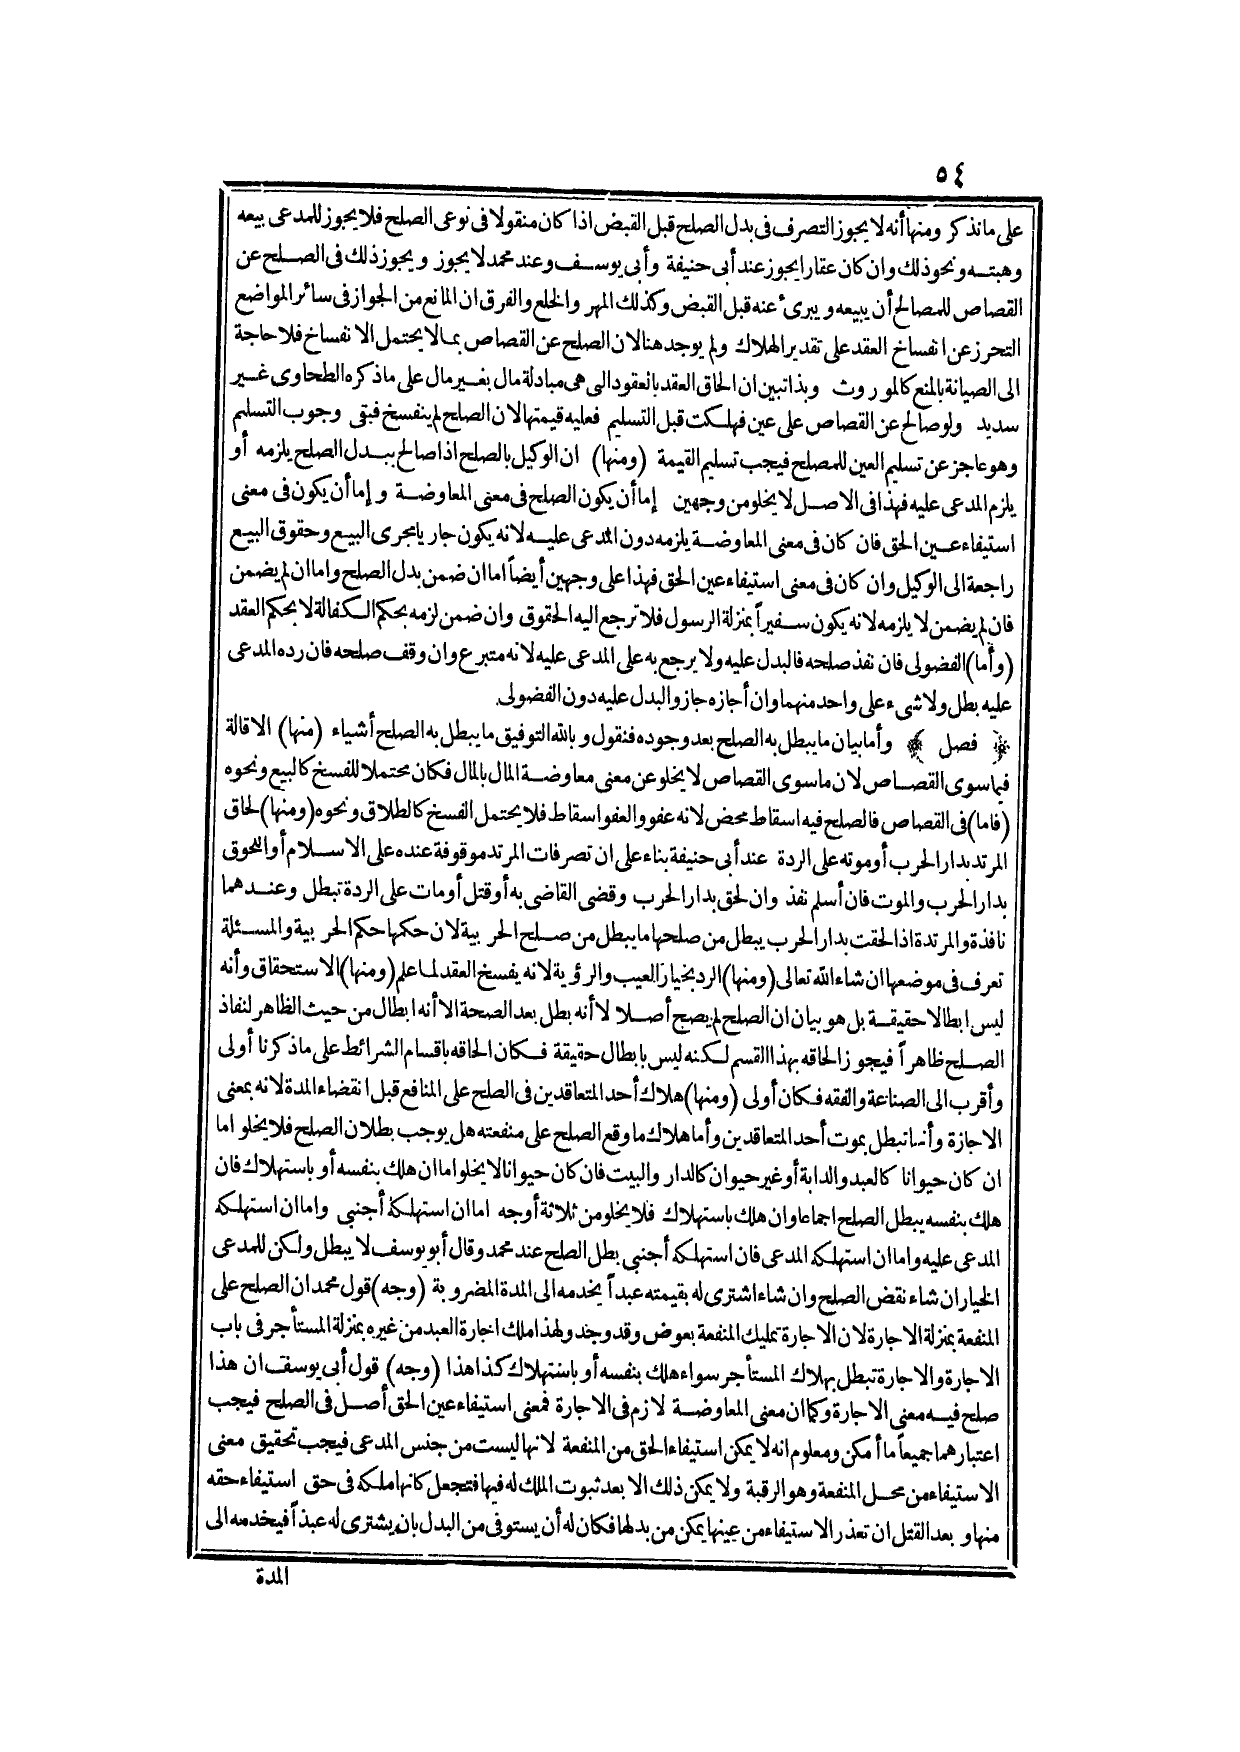 ٥٤
على ما نذكر ومنها أنه لا يجوز التصرف فى بدل الصلح قبل القبض اذا كان منقولا فى نوعى الصلح فلا يجوز للمدعى بيعه
وهبته ونحو ذلك وان كان عقارا يجوز عند أبى حنيفة وأبى يوسف وعند محمد لا يجوز ويجوز ذلك فى الصلح عن
القصاص للمصالح أن يبيعه ويبرئ عنه قبل القبض وكذلك المهر والخلع والفرق ان المانع من الجواز فى سائر المواضع
التحرز عن انفساخ العقد على تقدير الهلاك ولم يوجد هنا لان الصلح عن القصاص بما لا يحتمل الانفساخ فلا حاجة
الى الصيانة بالمنع كالموروث وبذا تبين ان الحاق العقد بالعقود التى هى مبادلة مال بغير مال على ما ذكره الطحاوى غير
سديد ولو صالح عن القصاص على عين فهلكت قبل التسليم فعليه قيمتها لان الصلح لم ينفسخ فبقى وجوب التسليم
وهو عاجز عن تسليم العين للمصلح فيجب تسليم القيمة (ومنها) ان الوكيل بالصلح اذا صالح ببدل الصلح يلزمه أو
يلزم المدعى عليه فهذا فى الاصل لا يخلو من وجهين إما أن يكون الصلح فى معنى المعاوضة وإما أن يكون فى معنى
استيفاء عين الحق فان كان فى معنى المعاوضة يلزمه دون المدعى عليه لانه يكون جاريا مجرى البيع وحقوق البيع
راجعة الى الوكيل وان كان فى معنى استيفاء عين الحق فهذا على وجهين أيضاً اما ان ضمن بدل الصلح واما ان لم يضمن
فان لم يضمن لا يلزمه لانه يكون سفيراً بمنزلة الرسول فلا ترجع اليه الحقوق وان ضمن لزمه بحكم الكفالة لا بحكم العقد
(وأما) الفضولى فان نفذ صلحه فالبدل عليه ولا يرجع به على المدعى عليه لانه متبرع وان وقف صلحه فان رده المدعى
عليه بطل ولا شىء على واحد منهما وان أجازه جاز والبدل عليه دون الفضولى.
﴿ فصل ﴾ وأما بيان ما يبطل به الصلح بعد وجوده فنقول وبالله التوفيق ما يبطل به الصلح أشياء (منها) الاقالة
فيما سوى القصاص لان ما سوى القصاص لا يخلو عن معنى معاوضة المال بالمال فكان محتملا للفسخ كالبيع ونحوه
(فاما) فى القصاص فالصلح فيه اسقاط محض لانه عفو والعفو اسقاط فلا يحتمل الفسخ كالطلاق ونحوه (ومنها) لحاق
المرتد بدار الحرب أو موته على الردة عند أبى حنيفة بناء على ان تصرفات المرتد موقوفة عنده على الاسلام أو اللحوق
بدار الحرب والموت فان أسلم نفذ وان لحق بدار الحرب وقضى القاضى به أو قتل أو مات على الردة تبطل وعندهما
نافذة والمرتدة اذا لحقت بدار الحرب يبطل من صلحها ما يبطل من صلح الحربية لان حكمها حكم الحربية والمسئلة
تعرف فى موضعها ان شاء الله تعالى (ومنها) الرد بخيار العيب والرؤية لانه يفسخ العقد لما علم (ومنها) الاستحقاق وأنه
ليس ابطالا حقيقة بل هو بيان ان الصلح لم يصح أصلا لا أنه بطل بعد الصحة الا أنه ابطال من حيث الظاهر لنفاذ
الصلح ظاهراً فيجوز الحاقه بهذا القسم لكنه ليس بابطال حقيقة فكان الحاقه باقسام الشرائط على ما ذكرنا أولى
وأقرب الى الصناعة والفقه فكان أولى (ومنها) هلاك أحد المتعاقدين فى الصلح على المنافع قبل انقضاء المدة لانه بمعنى
الاجازة وأنها تبطل بموت أحد المتعاقدين وأما هلاك ما وقع الصلح على منفعته هل يوجب بطلان الصلح فلا يخلو اما
ان كان حيوانا كالعبد والدابة أو غير حيوان كالدار والبيت فان كان حيوانا لا يخلو اما ان هلك بنفسه أو باستهلاك فان
هلك بنفسه يبطل الصلح اجماعا وان هلك باستهلاك فلا يخلو من ثلاثة أوجه اما ان استهلكه أجنبى واما ان استهلكه
المدعى عليه واما ان استهلكه المدعى فان استهلكه أجنبى بطل الصلح عند محمد وقال أبو يوسف لا يبطل ولكن للمدعى
الخيار ان شاء نقض الصلح وان شاء اشترى له بقيمته عبداً يخدمه الى المدة المضروبة (وجه) قول محمد ان الصلح على
المنفعة بمنزلة الاجارة لان الاجارة تمليك المنفعة بعوض وقد وجد ولهذا ملك اجارة العبد من غيره بمنزلة المستأجر فى باب
الاجارة والاجارة تبطل بهلاك المستأجر سواء هلك بنفسه أو باستهلاك كذا هذا (وجه) قول أبى يوسف ان هذا
صلح فيه معنى الاجارة وكما ان معنى المعاوضة لازم فى الاجارة فمعنى استيفاء عين الحق أصل فى الصلح فيجب
اعتبارهما جميعاً ما أمكن ومعلوم انه لا يمكن استيفاء الحق من المنفعة لانها ليست من جنس المدعى فيجب تحقيق معنى
الاستيفاء من محل المنفعة وهو الرقبة ولا يمكن ذلك الا بعد ثبوت الملك له فيها فتجعل كانها ملكه فى حق استيفاء حقه
منها وبعد القتل ان تعذر الاستيفاء من عينها يمكن من بدلها فكان له أن يستوفى من البدل بان يشترى له عبداً فيخدمه الى
المدة